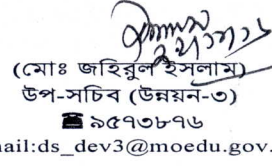 (মোঃ জহিরুল ইসলাম)
উপ-সচিব (উন্নয়ন-৩)
☎ ৯৫৭৩৮৭৬
ail:ds_dev3@moedu.gov.